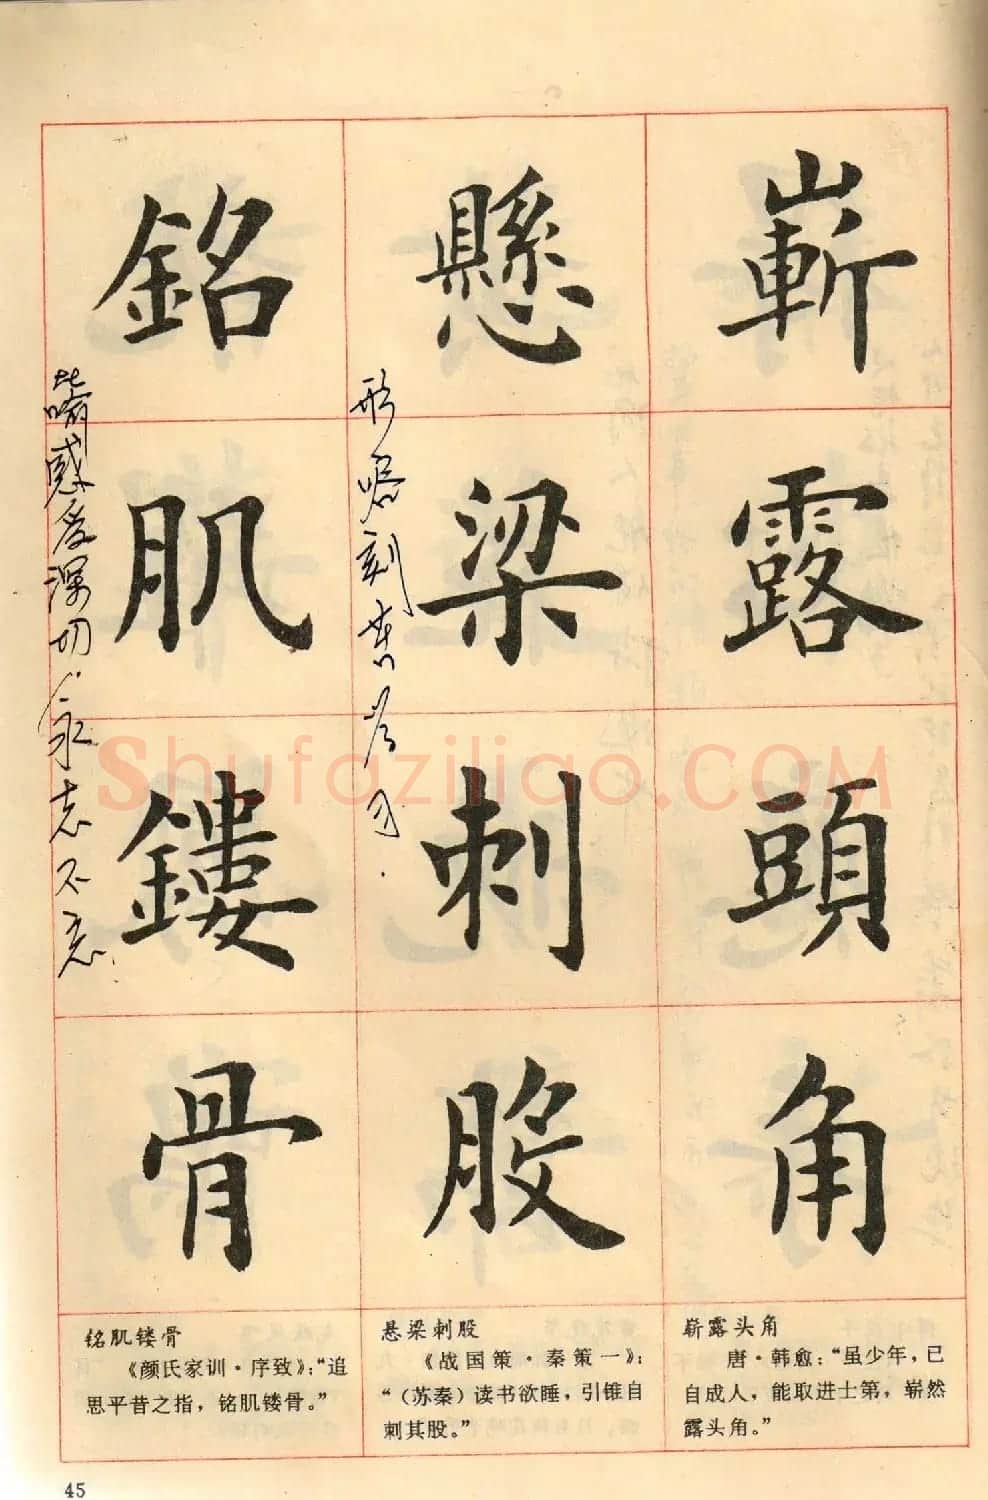 嶄露頭角
懸梁刺股
形容刻苦学习.
銘肌鏤骨
比喻感受深切,永志不忘
崭露头角
唐·韩愈：“虽少年，已
自成人，能取进士第，崭然
露头角。”
悬梁刺股
《战国策·秦策一》：
“（苏秦）读书欲睡，引锥自
刺其股。”
铭肌镂骨
《颜氏家训·序致》：“追
思平昔之指，铭肌镂骨。”
45
Shufaziliao.COM